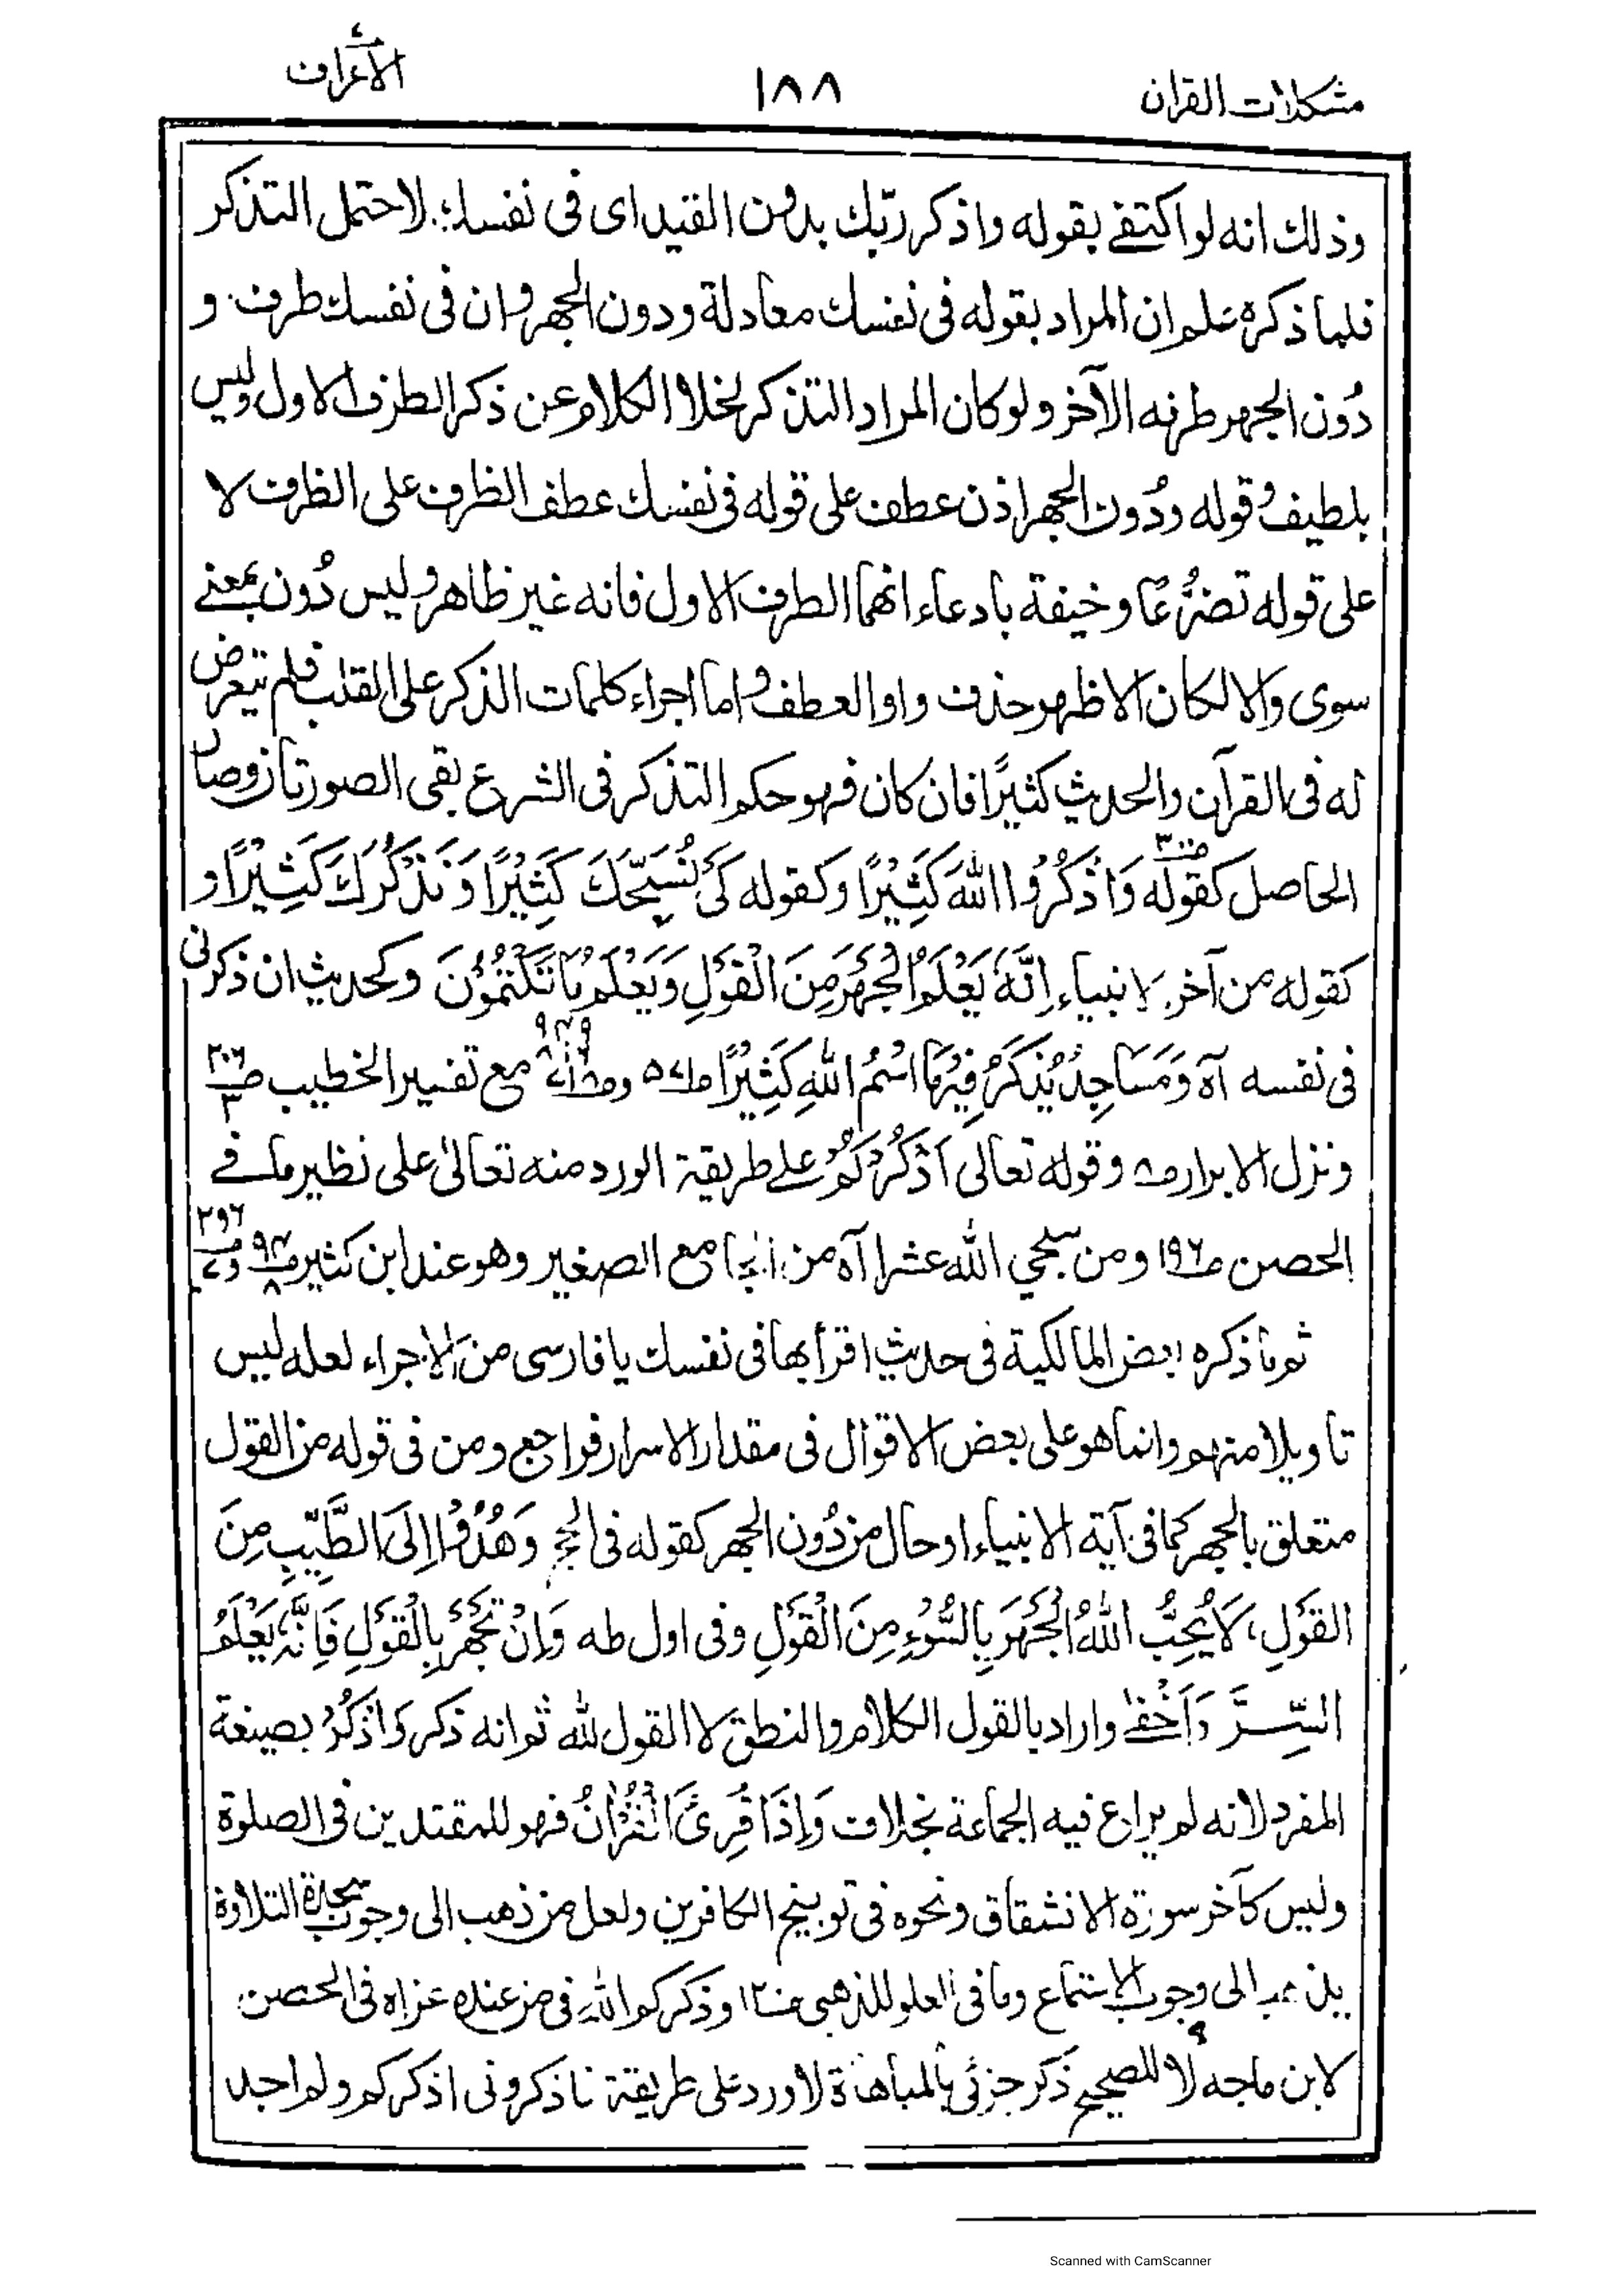 مشكلات القرآن
١٨٨
الأعراف
وذلك انه لو اكتفے بقوله واذكر ربّك بدون القيد اى فى نفسك لاحتمل التذكر
فلما ذكره علم ان المراد بقوله فى نفسك معادلة ودون الجهر وان فى نفسك طرف و
دُون الجهر طرفه الآخر ولو كان المراد التذكر لخلا الكلام عن ذكر الطرف الاول وليس
بلطيف وقوله ودُون الجهر اذن عطف على قوله فى نفسك عطف الظرف على الظرف لا
على قوله تضرُّعًا وخيفة بادعاء انهما الطرف الاول فانه غير ظاهر وليس دُون بمعنے
سوى والا لكان الاظهر حذف واو العطف واما اجراء كلمات الذكر على القلب فلم يتعرض
له فى القرآن والحديث كثيرًا فان كان فهو حكم التذكر فى الشرع بقى الصورتان وصار
الحاصل كقوله وَاذْكُرُوا اللهَ كَثِيْرًا وكقوله كَىْ نُسَبِّحَكَ كَثِيْرًا وَنَذْكُرَكَ كَثِيْرًا و
كقوله من آخر الانبياء اِنَّهٗ يَعْلَمُ الْجَهْرَ مِنَ الْقَوْلِ وَيَعْلَمُ مَا تَكْتُمُوْنَ وكحديث ان ذكرنى
فى نفسه آه وَمَسَاجِدُ يُذْكَرُ فِيْهَا اسْمُ اللهِ كَثِيْرًا مع تفسير الخطيب ص ٢٠٦/٣
ونزل الابرار وقوله تعالى اَذْكُرْكُمْ علے طريقة الورد منه تعالىٰ على نظير ما فے
الحصن ص١٩٦ ومن سبحي الله عشرا آه من الجامع الصغير وهو عند ابن كثير
ثم ما ذكره بعض المالكية فى حديث اقرأ بها فى نفسك يا فارسى من الاجراء لعله ليس
تاويلا منهم وانما هو على بعض الاقوال فى مقدار الاسرار فراجع ومن فى قوله من القول
متعلق بالجهر كما فى آية الانبياء او حال من دُون الجهر كقوله فى الحج وَهُدُوْا اِلَى الطَّيِّبِ مِنَ
القَوْلِ، لَا يُحِبُّ اللهُ الْجَهْرَ بِالسُّوْءِ مِنَ الْقَوْلِ وفى اول طه وَاِنْ تَجْهَرْ بِالْقَوْلِ فَاِنَّهٗ يَعْلَمُ
السِّرَّ وَاَخْفٰے واراد بالقول الكلام والنطق لا القول لله ثم انه ذكر وَاذْكُرْ بصيغة
المفرد لانه لم يراع فيه الجماعة بخلاف وَاِذَا قُرِئَ الْقُرْاٰنُ فهو للمقتدين فى الصلوة
وليس كآخر سورة الانشقاق ونحوه فى توبيخ الكافرين ولعل من ذهب الى وجوب سجدة التلاوة
يذهب الى وجوب الاستماع وما فى العلو للذهبى وذكركم الله فى من عنده عزاه فى الحصن
لابن ماجه لا للصحيح ذكر جزئى بالمباهاة لا ورد على طريقة فاذكرونى اذكركم ولم اجد
Scanned with CamScanner